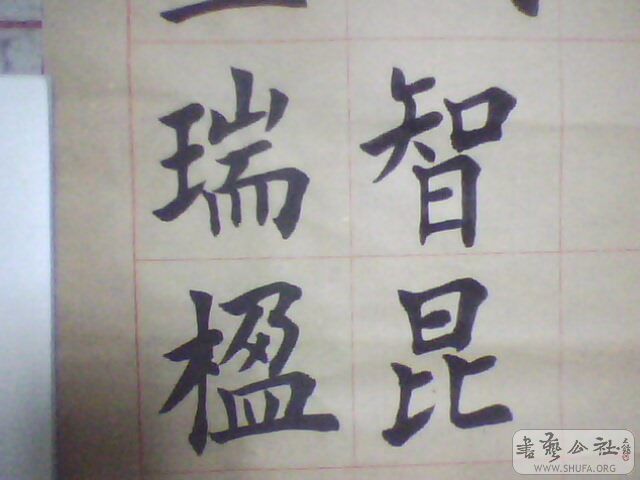 智昆
瑞楹
書藝公社
WWW.SHUFA.ORG